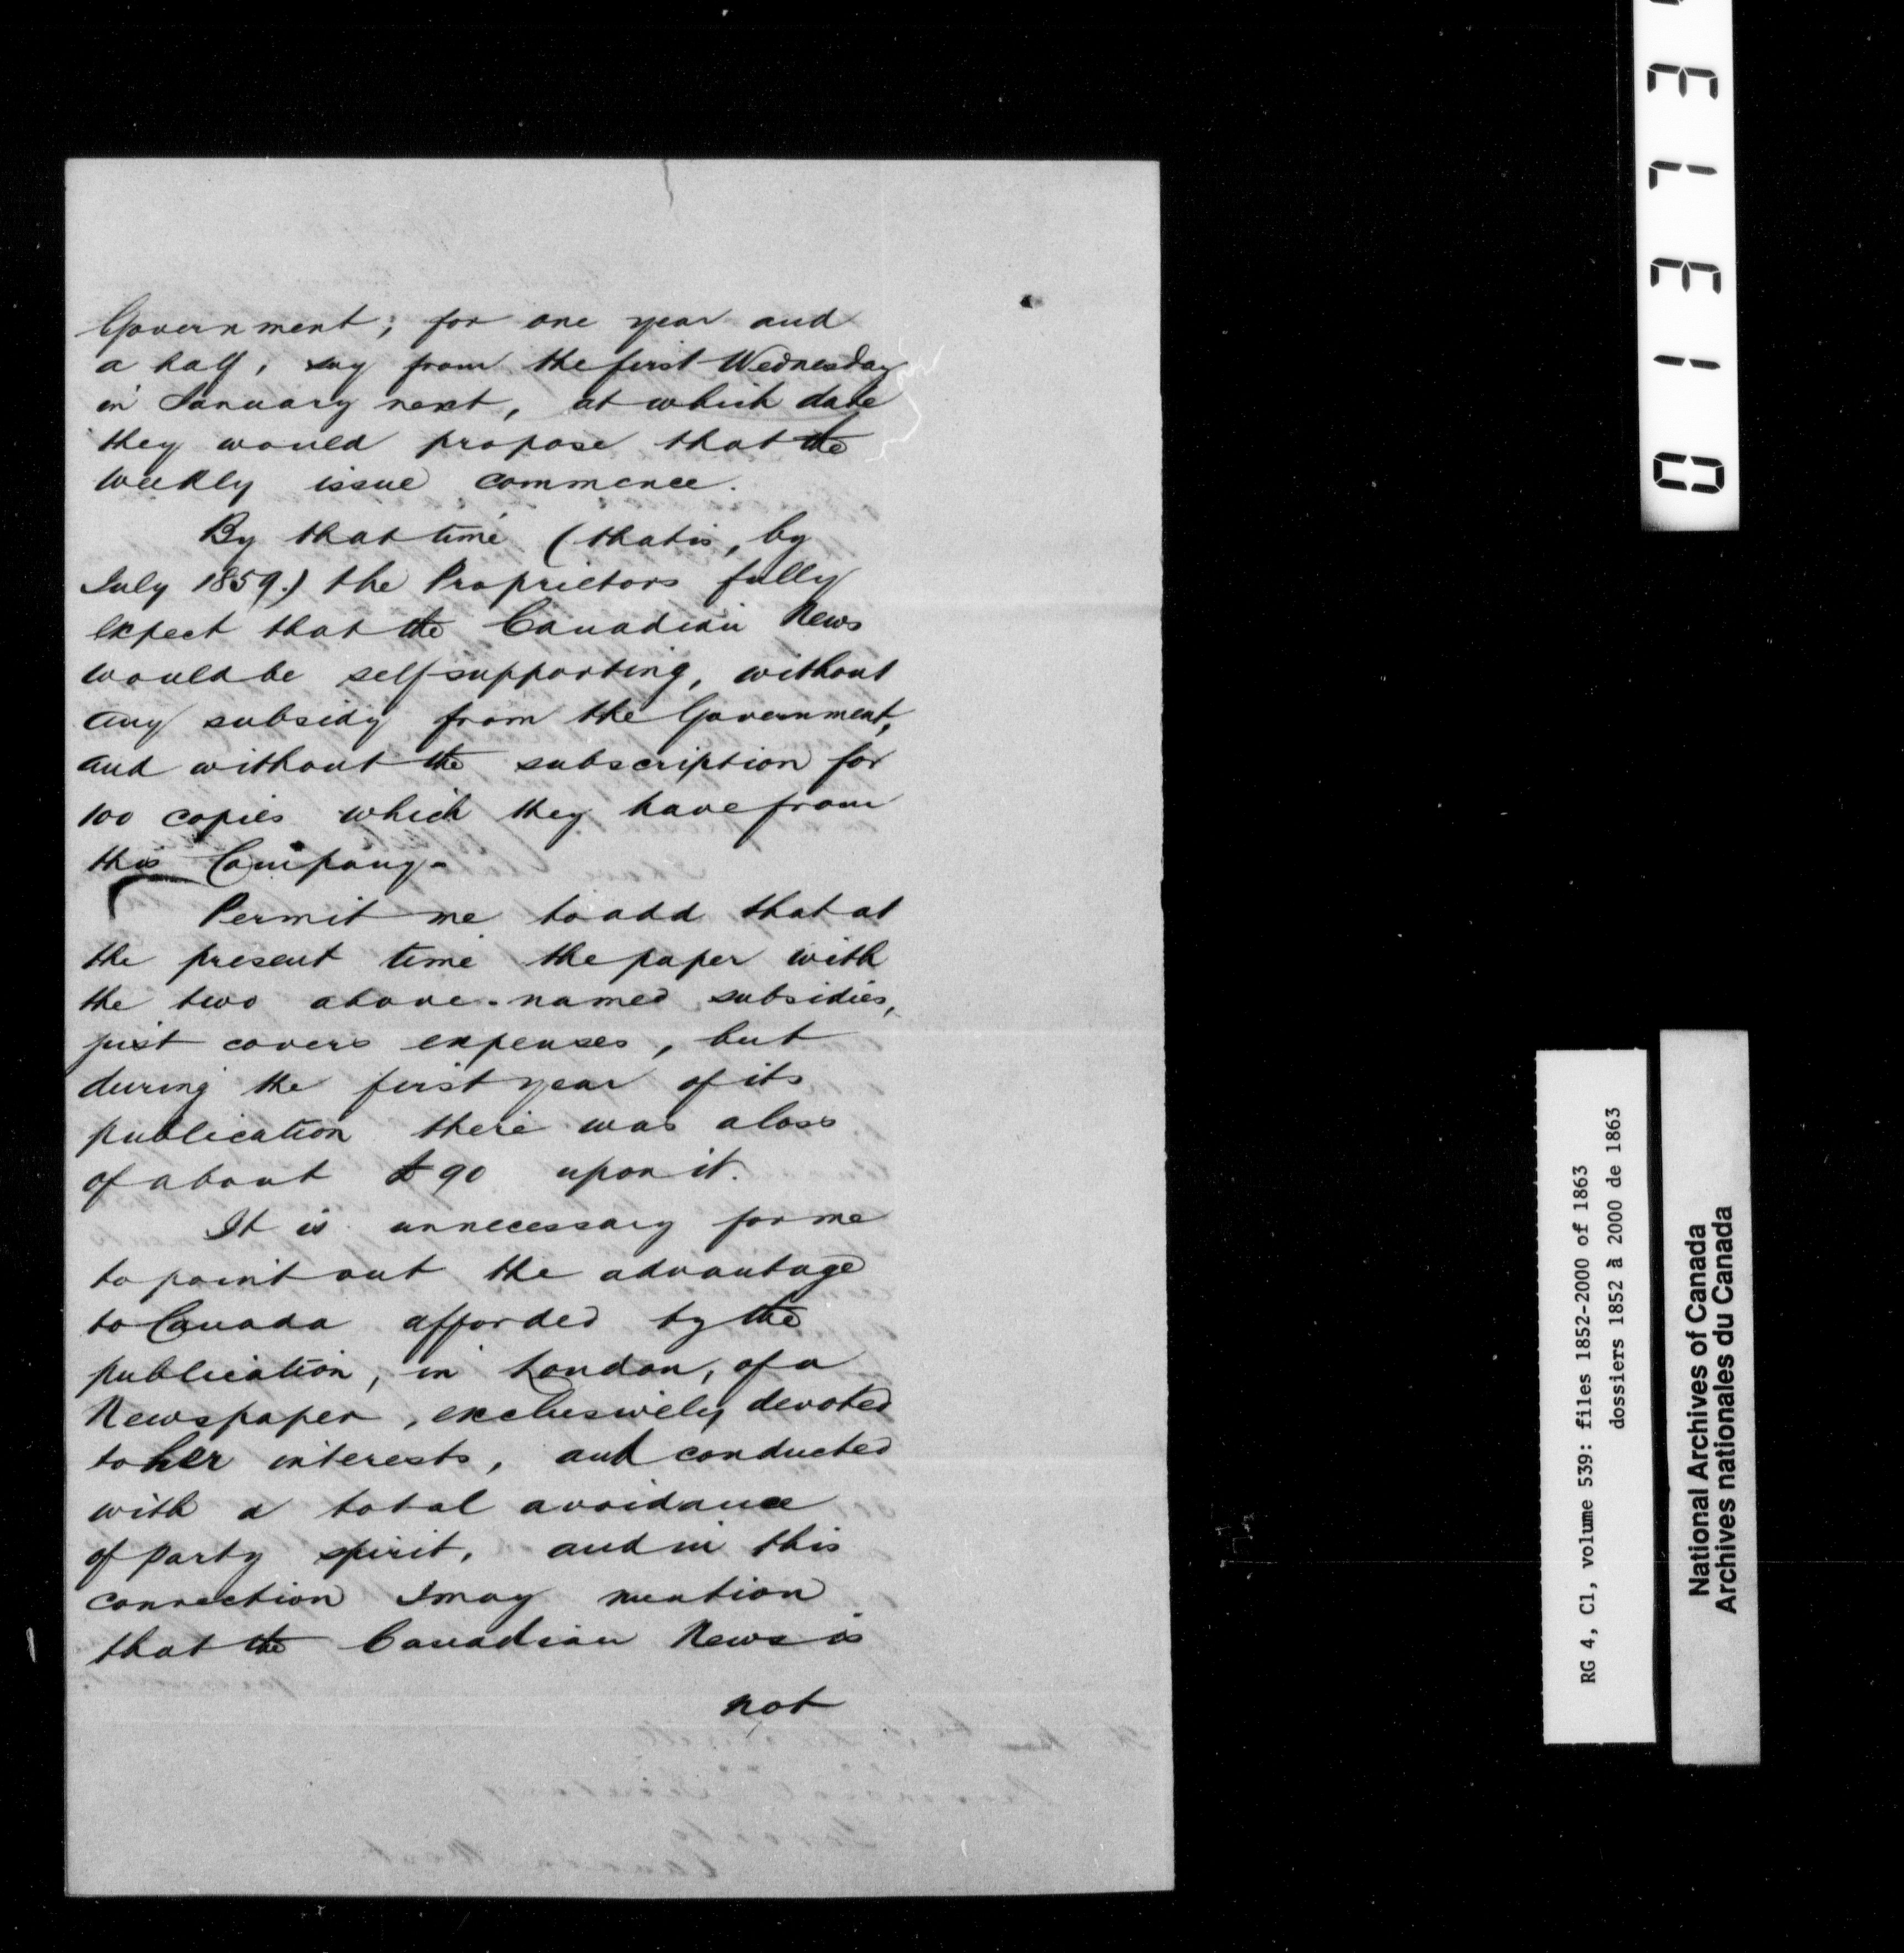 Government; for one year and
a half, say from the first Wednesday
in January next, at which date
they would propose that the
weekly issue commence.
By that time (that is, by
July 1859.) the Proprietors fully
expect that the Canadian News
would be self-supporting, without
any subsidy from the Government,
and without the subscription for
100 copies which they have from
this Company-
Permit me to add that at
the present time the paper with
the two above-named subsidies,
just covers expenses, but
during the first year of its
publication there was a loss
of about £90 upon it.
It is unnecessary for me
to point out the advantage
to Canada afforded by the
publication, in London, of a
Newspaper, exclusively devoted
to her interests, and conducted
with a total avoidance
of party spirit, and in this
connection I may mention
that the Canadian News is
not
RG 4, C1, volume 539: files 1852-2000 of 1863
dossiers 1852 à 2000 de 1863
National Archives of Canada
Archives nationales du Canada